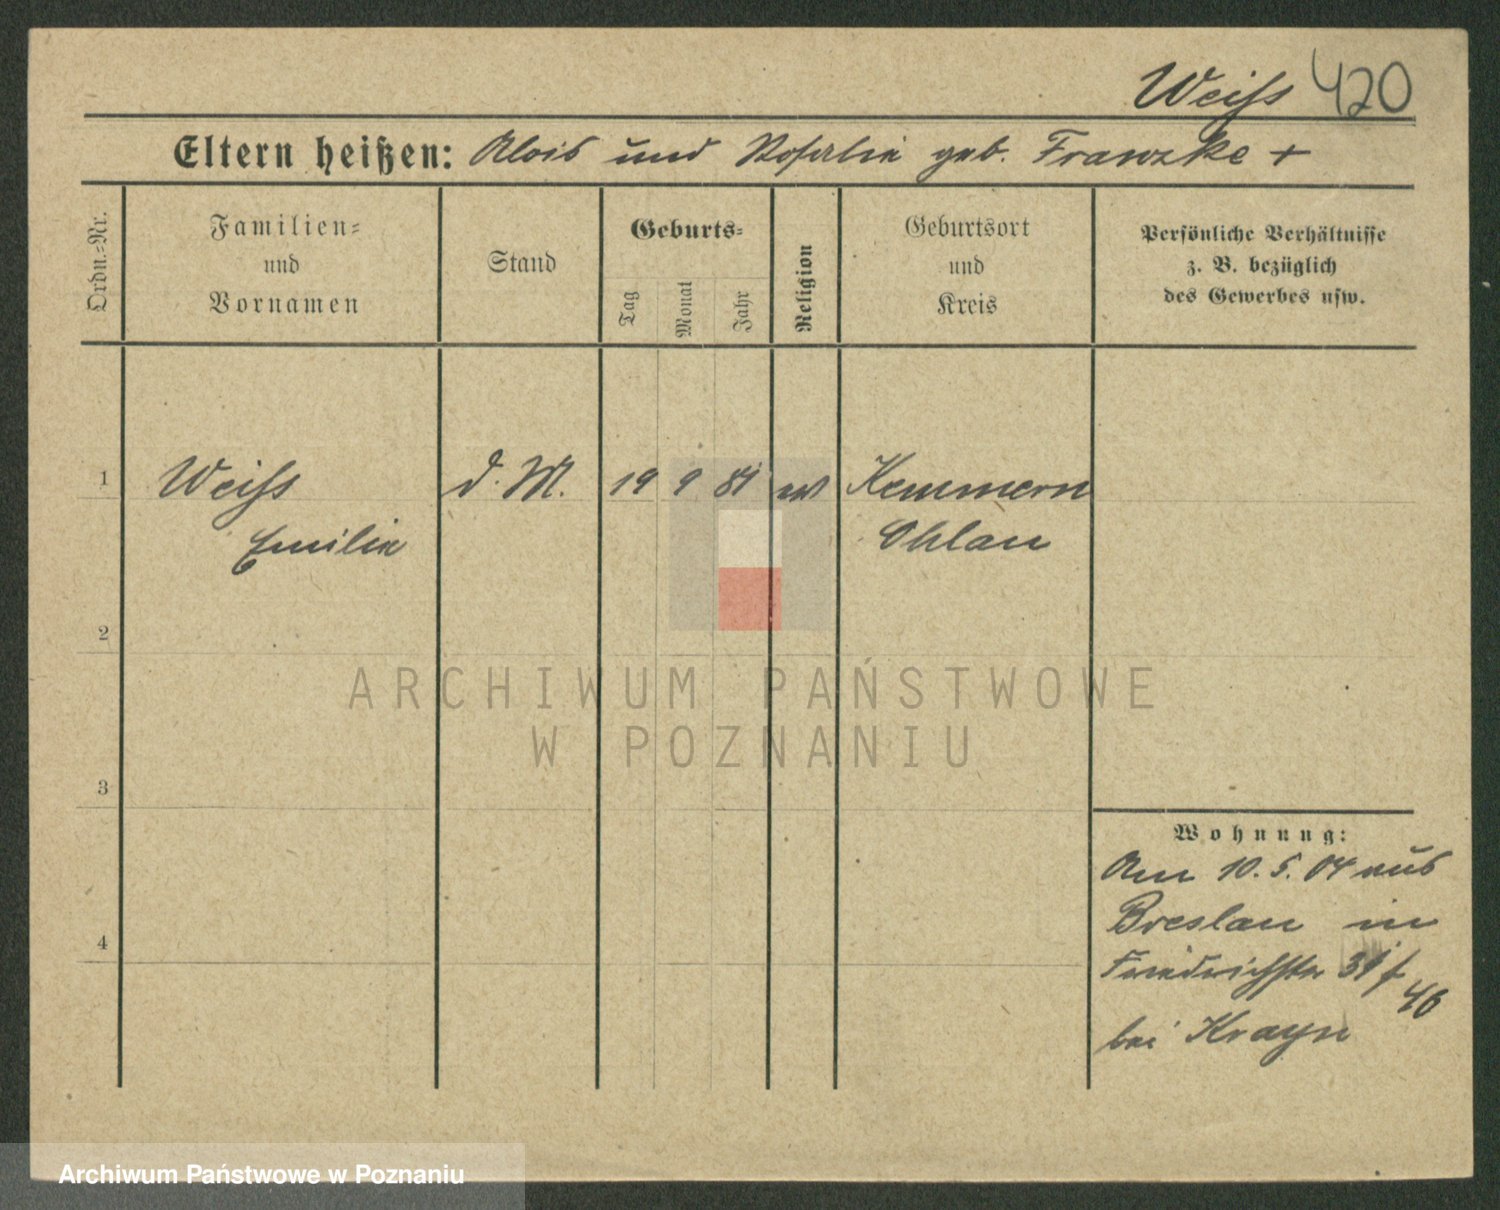 Weiss 420
Eltern heißen: Alois und Rosalie geb. Franzke +
Ordn.-Nr.
Familien-
und
Vornamen
Stand
Geburts-
Tag
Monat
Jahr
Religion
Geburtsort
und
Kreis
Persönliche Verhältnisse
z. B. bezüglich
des Gewerbes usw.
1 Weiss d. M. 19 9 81 Kemmern
Emilie Ohlau
2
ARCHIWUM PAŃSTWOWE
W POZNANIU
3
Wohnung:
Am 10. 5. 04 aus
Breslau in
Friedrichstr 31 f
46
bei Krayn
4
Archiwum Państwowe w Poznaniu